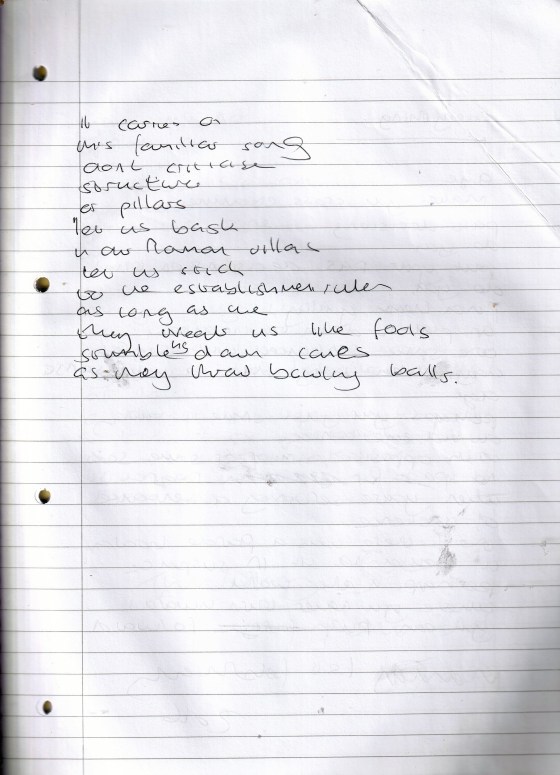 it carries on
this familiar song
dont criticise
structure
or pillars
let us bask
in our Roman villas
let us stick
to the establishment rules
as long as we
they treat us like fools
stumble us down lanes
as they throw bowling balls.